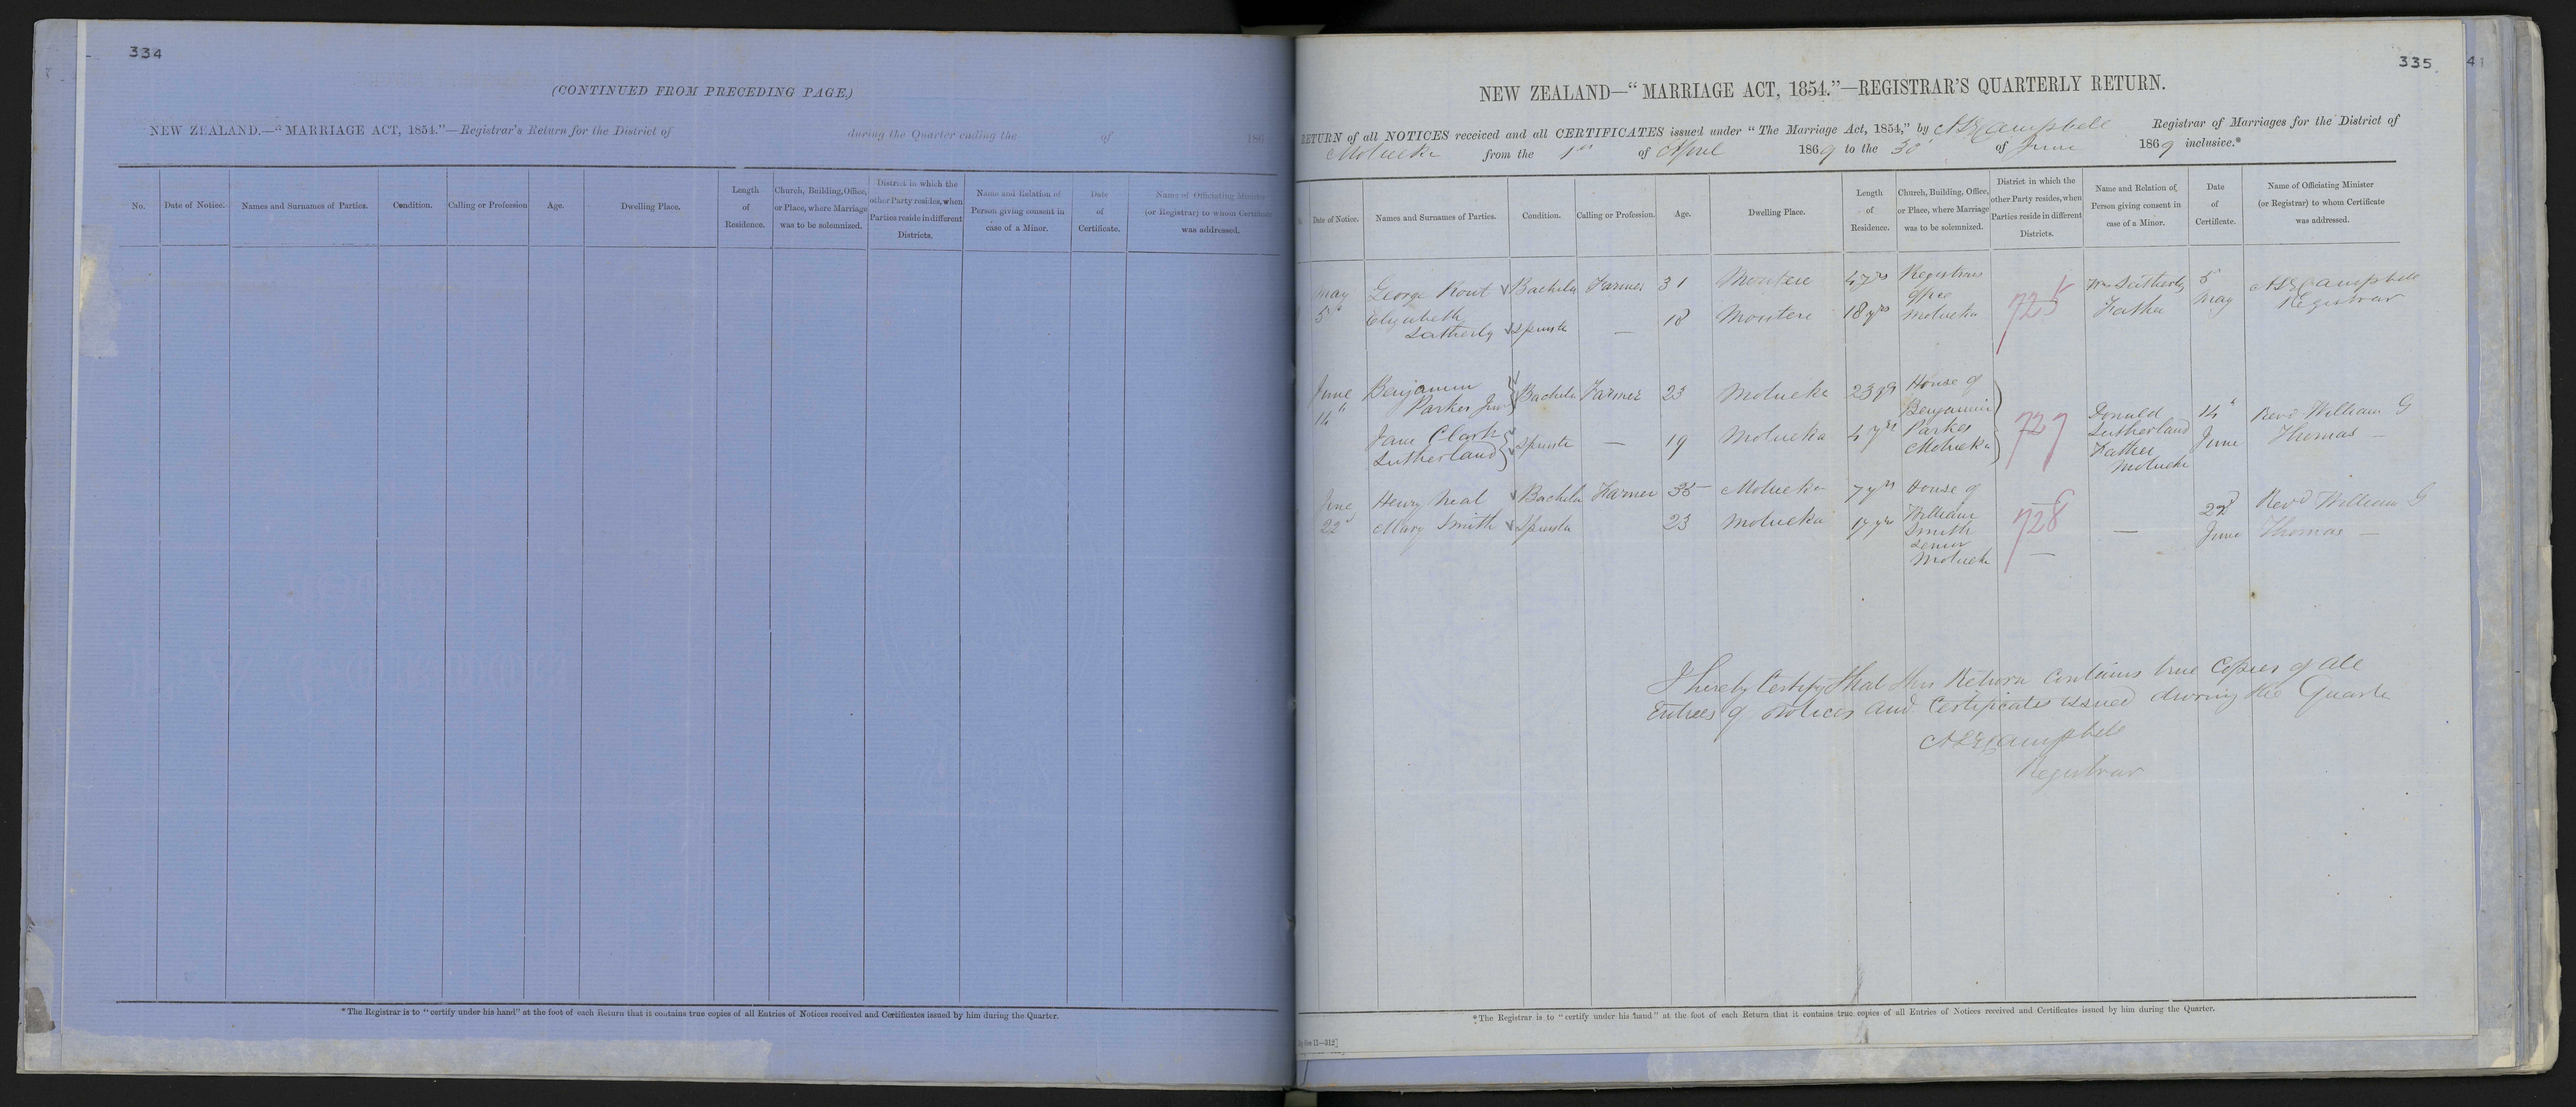 334
(CONTINUED FROM PRECEDING PAGE.)
NEW ZEALAND.—"MARRIAGE ACT, 1854."—Registrar's Return for the District of during the Quarter ending the of 186
No. Date of Notice. Names and Surnames of Parties. Condition. Calling or Profession Age. Dwelling Place. Length of Residence. Church, Building, Office, or Place, where Marriage was to be solemnized. District in which the other Party resides, when Parties reside in different Districts. Name and Relation of Person giving consent in case of a Minor. Date of Certificate. Name of Officiating Minister (or Registrar) to whom Certificate was addressed.
*The Registrar is to "certify under his hand" at the foot of each Return that it contains true copies of all Entries of Notices received and Certificates issued by him during the Quarter.
335
41
NEW ZEALAND—"MARRIAGE ACT, 1854."—REGISTRAR'S QUARTERLY RETURN.
RETURN of all NOTICES received and all CERTIFICATES issued under "The Marriage Act, 1854," by Campbell Registrar of Marriages for the District of
Motueka from the 1st of April 1869 to the 30 of June 1869 inclusive.*
Date of Notice. Names and Surnames of Parties. Condition. Calling or Profession. Age. Dwelling Place. Length of Residence. Church, Building, Office, or Place, where Marriage was to be solemnized. District in which the other Party resides, when Parties reside in different Districts. Name and Relation of Person giving consent in case of a Minor. Date of Certificate. Name of Officiating Minister (or Registrar) to whom Certificate was addressed.
May George Rout Bachelor Farmer 31 Moutere 4 yrs Registrars Office Wm Satherly 5 Campbell
5 Elizabeth Satherly Spinster — 18 Moutere 18 yrs Motueka 725 Father May Registrar
June Benjamin Bachelor Farmer 23 Motueka 23 yrs House of
14 Parker Junr Benjamin 727 Donald 14 Revd William G
Jane Clark Spinster — 19 Motueka 4 yrs Parker Sutherland June Thomas —
Sutherland Motueka Father
Motueka
June Henry Neal Bachelor Farmer 35 Motueka 7 yrs House of Revd William G
22 Mary Smith Spinster 23 Motueka 17 yrs William 728 — 22d Thomas —
Smith June
Senior
Motueka —
I hereby Certify that this Return contains true Copies of all
Entries of Notices and Certificates issued during the Quarter
Campbell
Registrar
*The Registrar is to "certify under his hand" at the foot of each Return that it contains true copies of all Entries of Notices received and Certificates issued by him during the Quarter.
11—312]